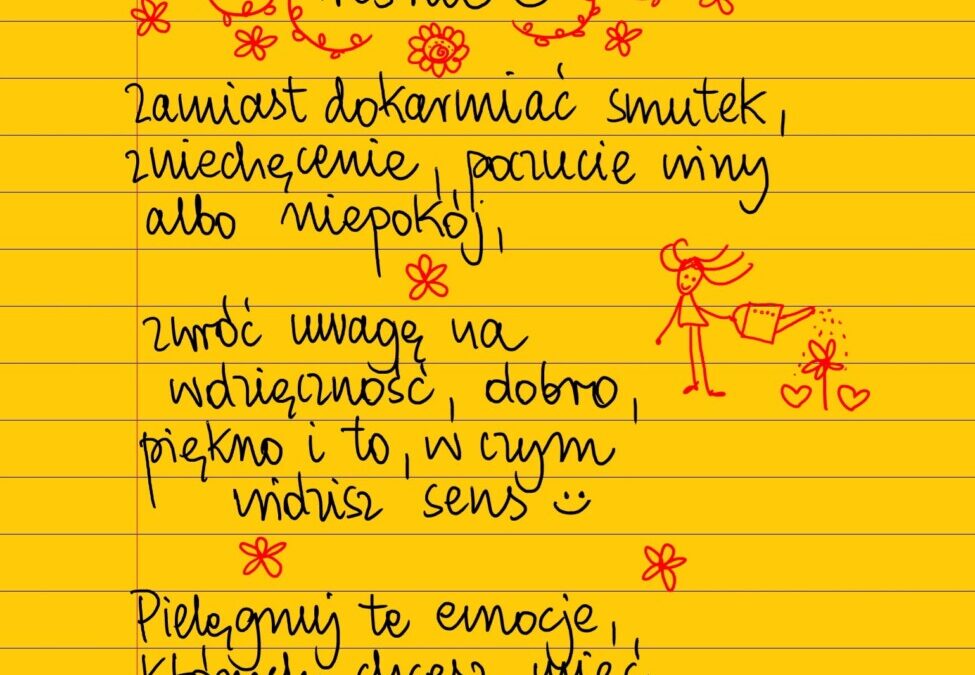 zamiast dokarmiać smutek,
zniechęcenie, poczucie winy
albo niepokój,
zwróć uwagę na
wdzięczność, dobro,
piękno i to, w czym
widzisz sens
Pielęgnuj te emocje,
których chcesz mieć